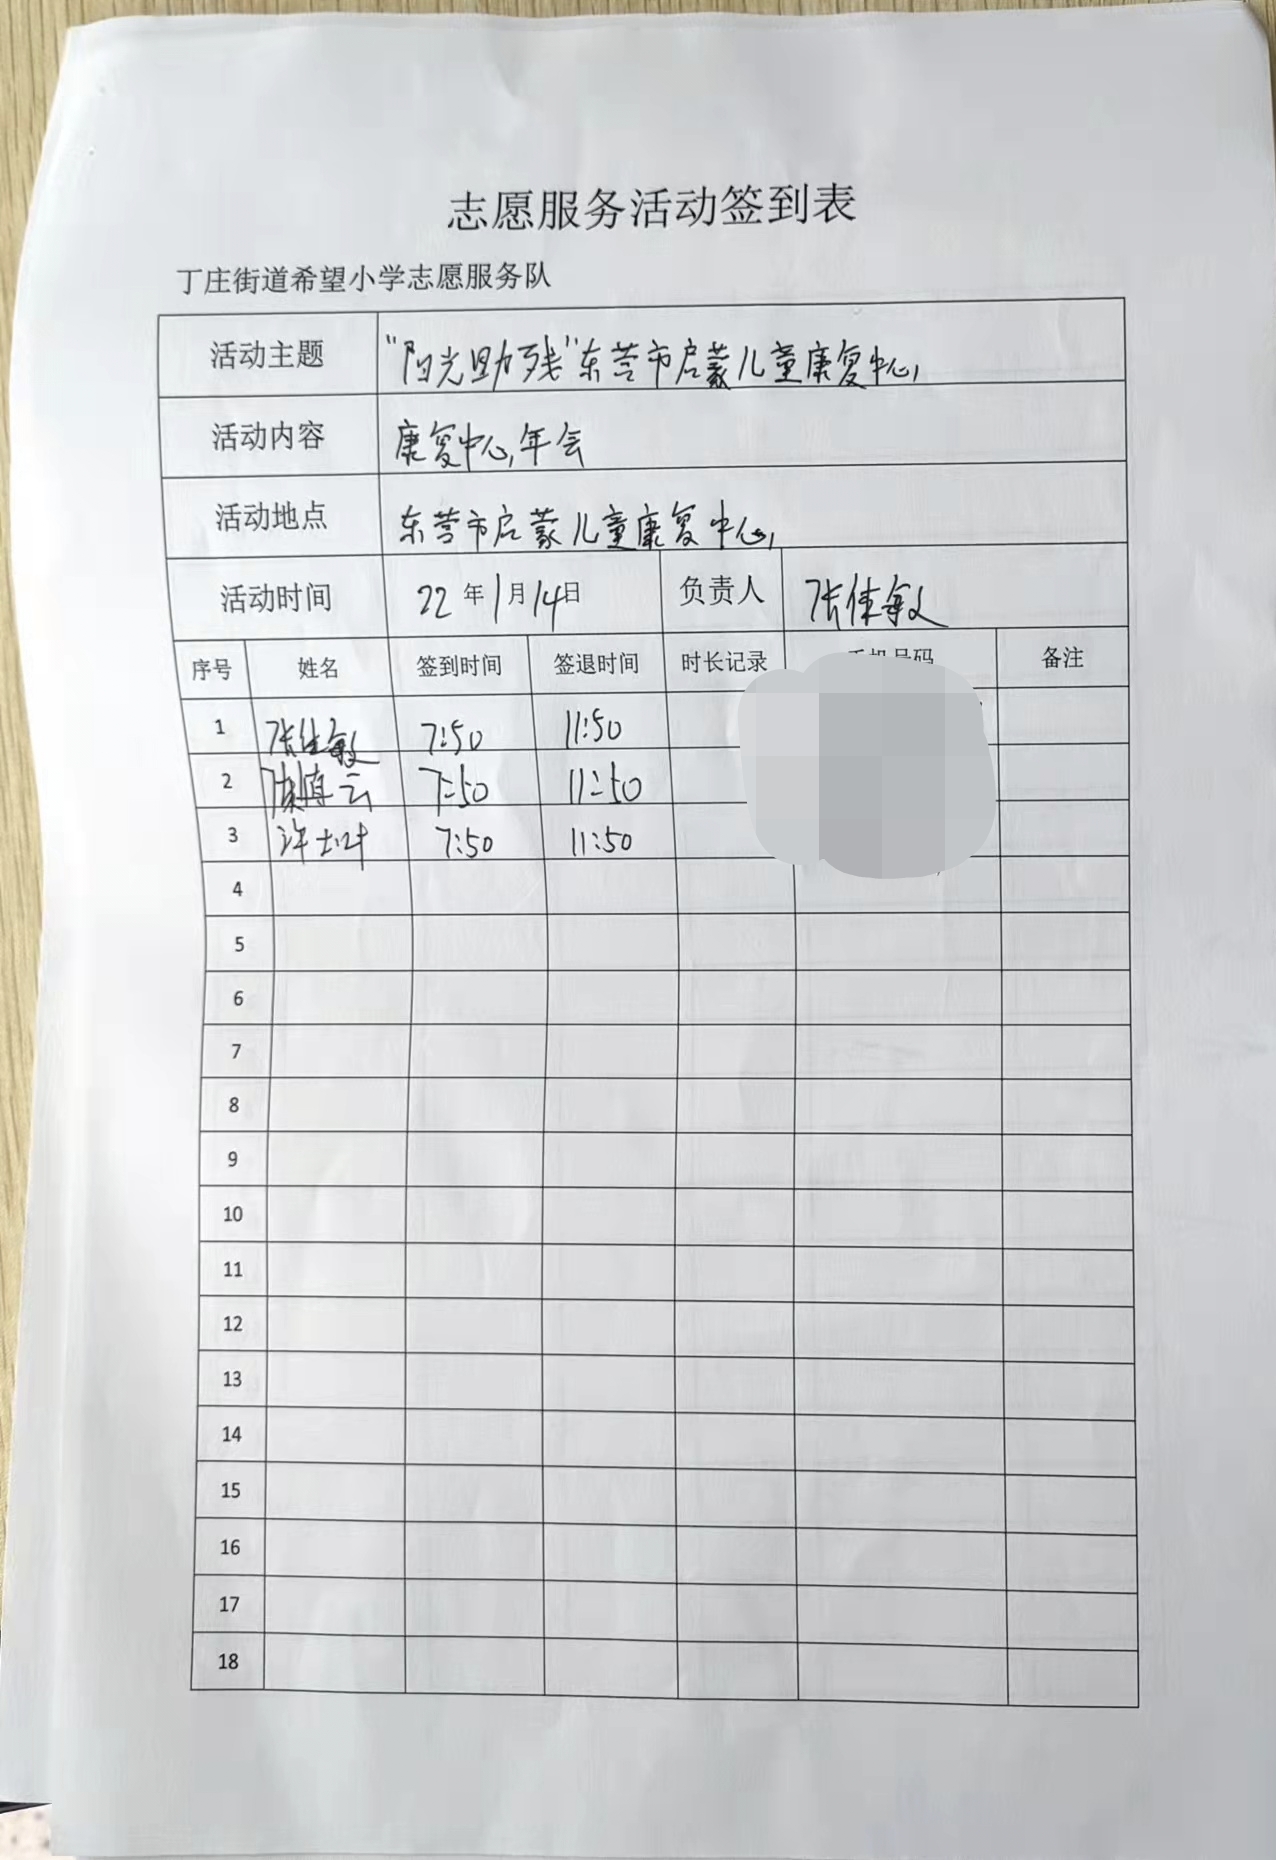 志愿服务活动签到表
丁庄街道希望小学志愿服务队
活动主题 "阳光助残"东营市启蒙儿童康复中心
活动内容 康复中心年会
活动地点 东营市启蒙儿童康复中心
活动时间 22年1月14日 负责人 张佳敏
序号 姓名 签到时间 签退时间 时长记录 手机号码 备注
1 张佳敏 7:50 11:50
2 云 7:50 11:50
3 许 7:50 11:50
4
5
6
7
8
9
10
11
12
13
14
15
16
17
18